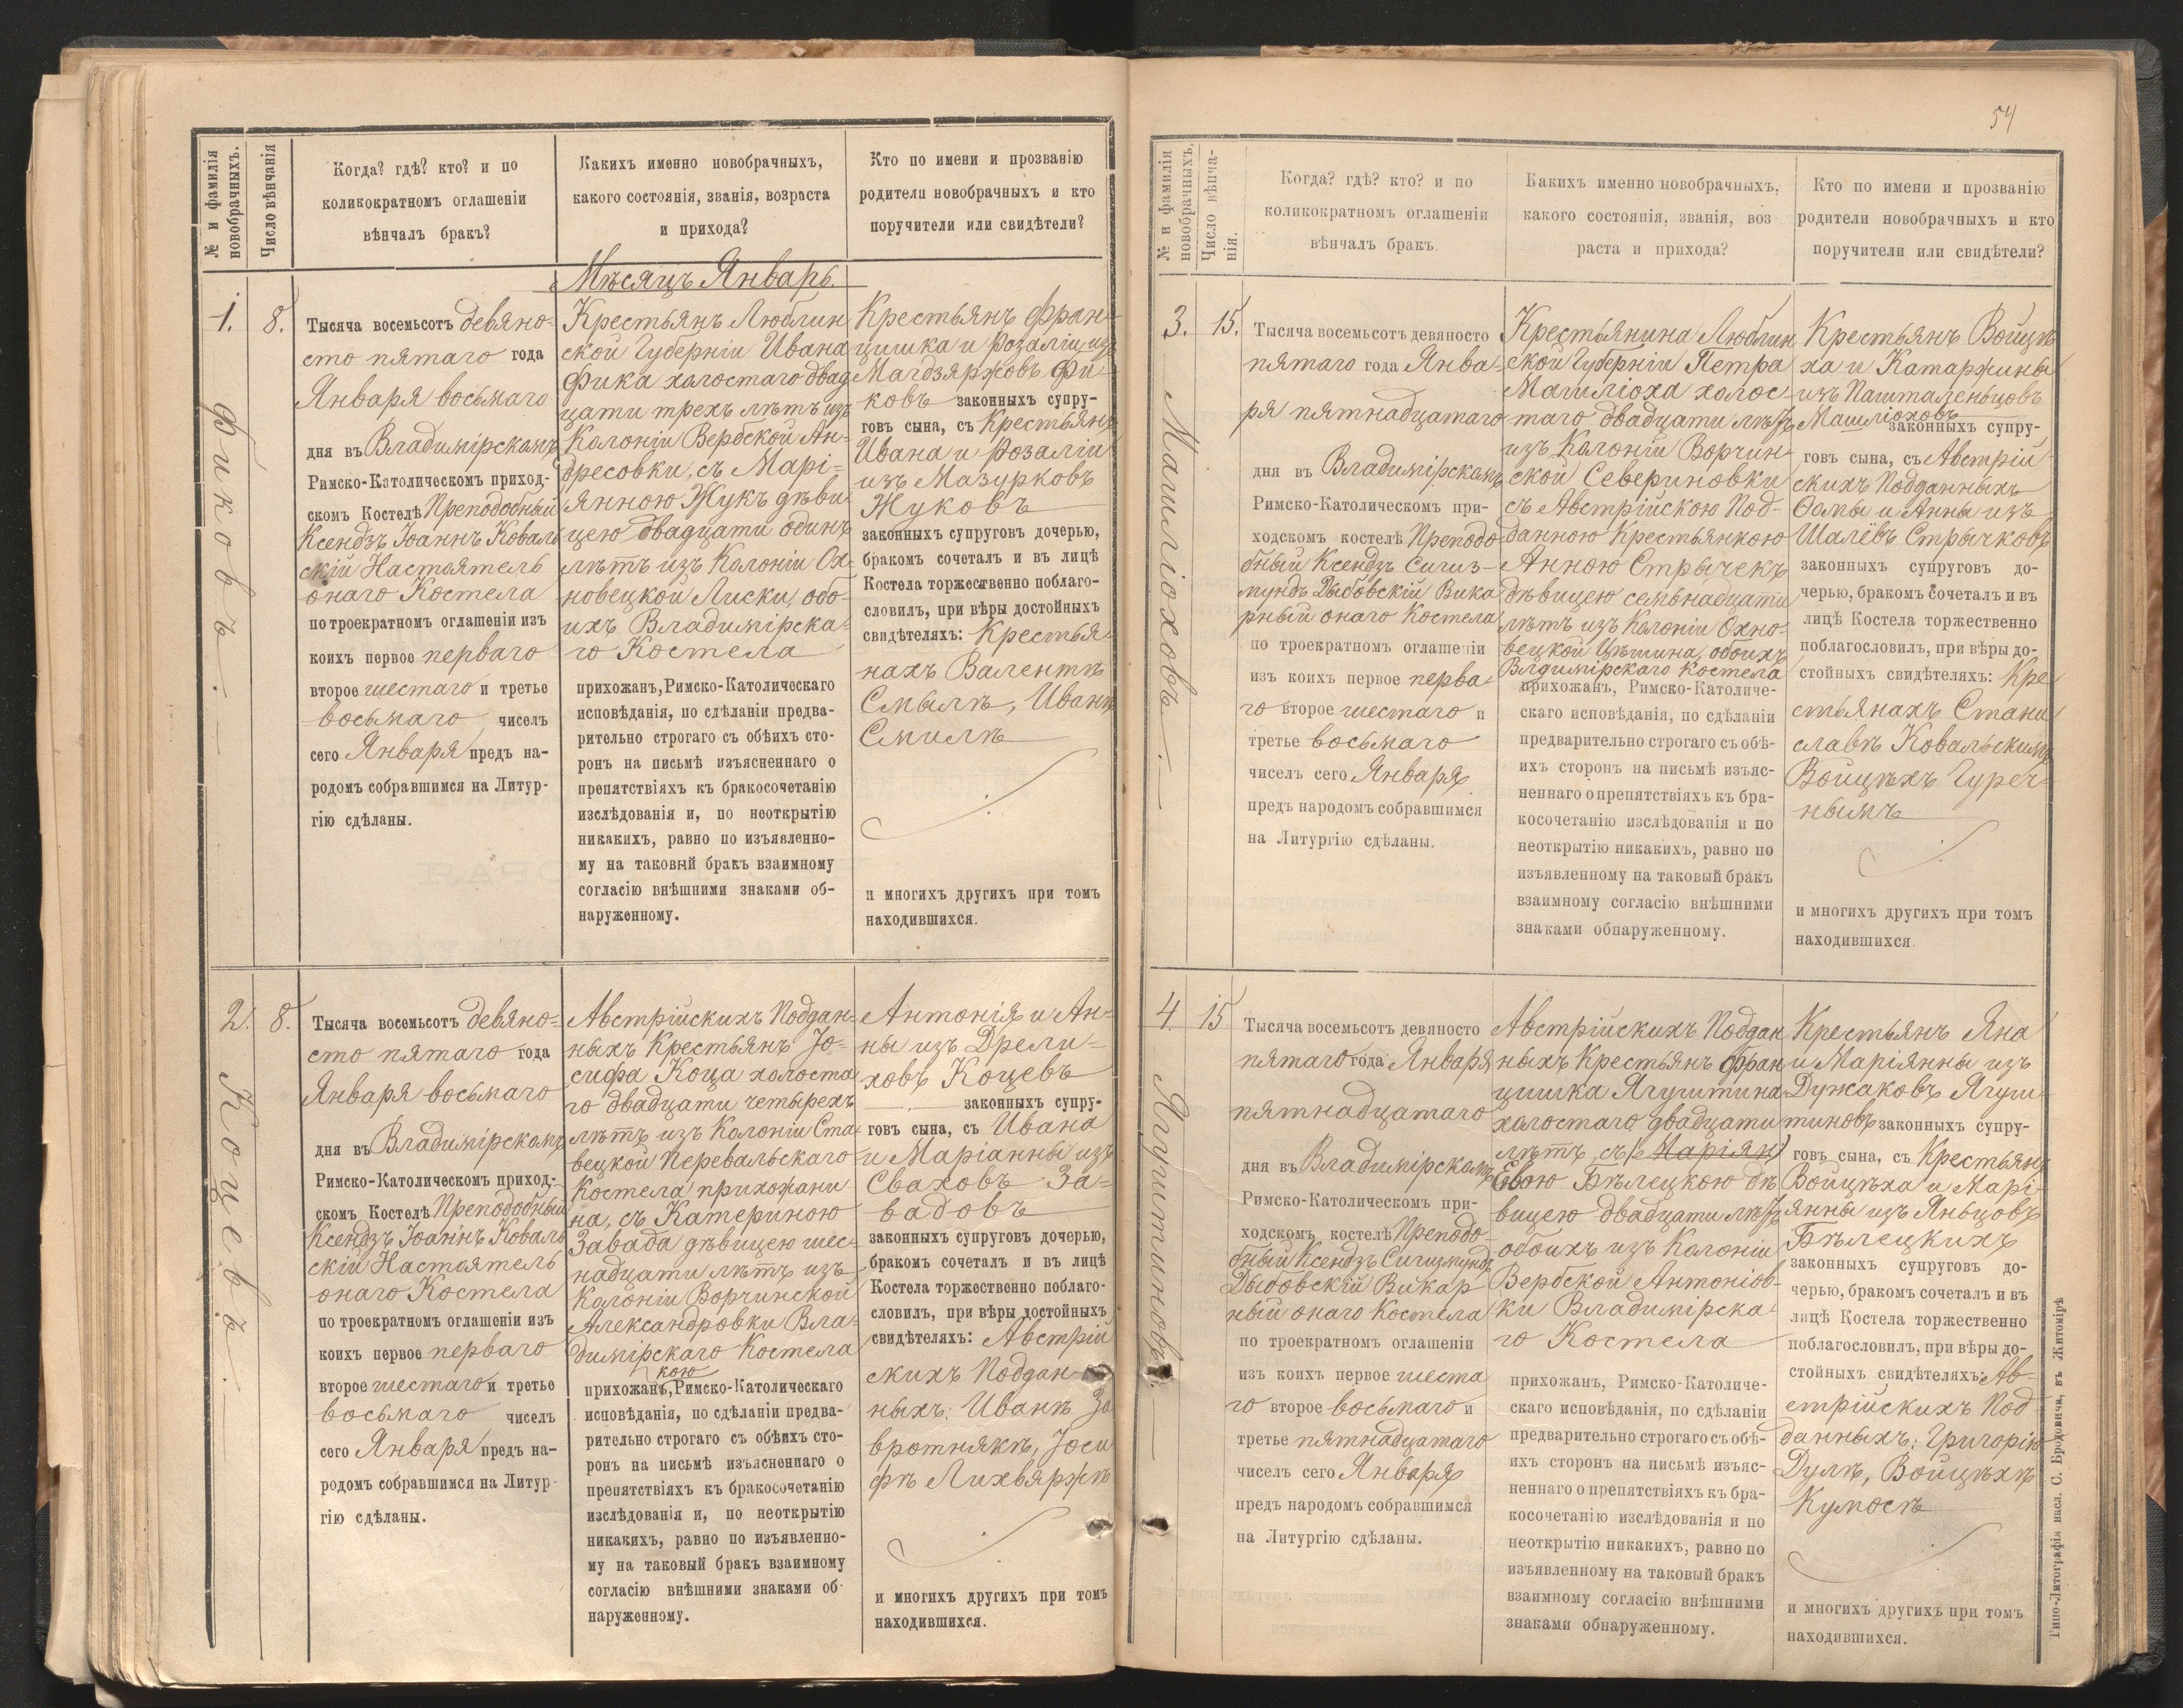 54
№ и фамилія новобрачныхъ.
Число вѣнчанія
Когда? гдѣ? кто? и по
коликократномъ оглашеніи
вѣнчалъ бракъ?
Какихъ именно новобрачныхъ,
какого состоянія, званія, возраста
и прихода?
Кто по имени и прозванію
родители новобрачныхъ и кто
поручители или свидѣтели?
Мѣсяцъ Январь.
1.
Фиковъ.
8.
Тысяча восемьсотъ девяно-
сто пятаго года
Января восьмаго
дня въ Владимірскомъ
Римско-Католическомъ приход-
скомъ Костелѣ Преподобный
Ксендзъ Іоаннъ Коваль
скій Настоятель
онаго Костела
по троекратномъ оглашеніи изъ
коихъ первое перваго
второе шестаго и третье
восьмаго чиселъ
сего Января предъ на-
родомъ собравшимся на Литур-
гію сдѣланы.
Крестьянъ Люблин
ской Губерніи Ивана
Фика холостаго двад
цати трехъ лѣтъ изъ
Колоніи Вербской Ан-
дресовки, съ Марі-
янною Жукъ дѣви
цею двадцати одинъ
лѣтъ изъ Колоніи Ох-
новецкой Лиски, обо-
ихъ Владимірска-
го Костела
прихожанъ, Римско-Католическаго
исповѣданія, по сдѣланіи предва-
рительно строгаго съ обѣихъ сто-
ронъ на письмѣ изъясненнаго о
препятствіяхъ къ бракосочетанію
изслѣдованія и, по неоткрытію
никакихъ, равно по изъявленно-
му на таковый бракъ взаимному
согласію внѣшними знаками об-
наруженному.
Крестьянъ Фран-
цишка и Розаліи изъ
Магдзяржовъ Фи-
ковъ законныхъ супру-
говъ сына, съ Крестьянъ
Ивана и Розаліи
изъ Мазурковъ
Жуковъ
законныхъ супруговъ дочерью,
бракомъ сочеталъ и въ лицѣ
Костела торжественно поблаго-
словилъ, при вѣры достойныхъ
свидѣтеляхъ: Крестья-
нахъ Валентѣ
Смылѣ, Иванѣ
Смилѣ
и многихъ другихъ при томъ
находившихся.
2.
Коцевъ.
8.
Тысяча восемьсотъ девяно-
сто пятаго года
Января восьмаго
дня въ Владимірскомъ
Римско-Католическомъ приход-
скомъ Костелѣ Преподобный
Ксендзъ Іоаннъ Коваль
скій Настоятель
онаго Костела
по троекратномъ оглашеніи изъ
коихъ первое перваго
второе шестаго и третье
восьмаго чиселъ
сего Января предъ на-
родомъ собравшимся на Литур-
гію сдѣланы.
Австрійскихъ Поддан-
ныхъ Крестьянъ Іо-
сифа Коца холоста
го двадцати четырехъ
лѣтъ изъ Колоніи Ста-
вецкой Перевальскаго
Костела прихожани-
на, съ Катериною
Завада дѣвицею шес-
надцати лѣтъ изъ
Колоніи Ворчинской
Александровки Вла-
димірскаго Костела
кою
прихожанъ, Римско-Католическаго
исповѣданія, по сдѣланіи предва-
рительно строгаго съ обѣихъ сто-
ронъ на письмѣ изъясненнаго о
препятствіяхъ къ бракосочетанію
изслѣдованія и, по неоткрытію
никакихъ, равно по изъявленно-
му на таковый бракъ взаимному
согласію внѣшними знаками об-
наруженному.
Антонія и Ан-
ны изъ Дрели-
ховъ Коцевъ
законныхъ супру-
говъ сына, съ Ивана
и Маріанны изъ
Сваховъ За-
вадовъ
законныхъ супруговъ дочерью,
бракомъ сочеталъ и въ лицѣ
Костела торжественно поблаго-
словилъ, при вѣры достойныхъ
свидѣтеляхъ: Австрій
скихъ Поддан-
ныхъ: Иванѣ За
вротнякѣ, Іоси
фѣ Лихвяржѣ
и многихъ другихъ при томъ
находившихся.
№ и фамилія новобрачныхъ.
Число вѣнча-
нія.
Когда? гдѣ? кто? и по
коликократномъ оглашеніи
вѣнчалъ бракъ.
Какихъ именно новобрачныхъ,
какого состоянія, званія, воз
раста и прихода?
Кто по имени и прозванію
родители новобрачныхъ и кто
поручители или свидѣтели?
3.
Машліоховъ.
15.
Тысяча восемьсотъ девяносто
пятаго года Янва-
ря пятнадцатаго
дня въ Владимірскомъ
Римско-Католическомъ при-
ходскомъ костелѣ Преподо-
бный Ксендзъ Сигиз-
мундъ Дыбовскій Вика
рный онаго Костела
по троекратномъ оглашеніи
изъ коихъ первое перва-
го второе шестаго и
третье восьмаго
чиселъ сего Января
предъ народомъ собравшимся
на Литургію сдѣланы.
Крестьянина Люблин
ской Губерніи Петра
Машліоха холос-
таго двадцати лѣтъ
изъ Колоніи Ворчин-
ской Севериновки
съ Австрійскою Под-
данною Крестьянкою
Анною Стрычекъ
дѣвицею семьнадцати
лѣтъ изъ Колоніи Охно-
вецкой Цѣшина, обоихъ
Влдимірскаго Костела
прихожанъ, Римско-Католиче-
скаго исповѣданія, по сдѣланіи
предварительно строгаго съ обѣ-
ихъ сторонъ на письмѣ изъяс-
неннаго о препятствіяхъ къ бра-
косочетанію изслѣдованія и по
неоткрытію никакихъ, равно по
изъявленному на таковый бракъ
взаимному согласію внѣшними
знаками обнаруженному.
Крестьянъ Войцѣ
ха и Катаржины
изъ Пашталеньцовъ
Машліоховъ
законныхъ супру-
говъ сына, съ Австрій
скихъ Подданныхъ
Ѳомы и Анны изъ
Шалёвъ Стрычковъ
законныхъ супруговъ до-
черью, бракомъ сочеталъ и въ
лицѣ Костела торжественно
поблагословилъ, при вѣры до-
стойныхъ свидѣтеляхъ: Кре
стьянахъ Стани
славѣ Ковальскимъ
Войцѣхъ Гуреч-
нымъ
и многихъ другихъ при томъ
находившихся.
4.
Ягуштиновъ.
15
Тысяча восемьсотъ девяносто
пятаго года Января
пятнадцатаго
дня въ Владимірскомъ
Римско-Католическомъ при-
ходскомъ костелѣ Преподо-
бный Ксендзъ Сигизмундъ
Дыбовскій Викар
ный онаго Костела
по троекратномъ оглашеніи
изъ коихъ первое шеста
го второе восьмаго и
третье пятнадцатаго
чиселъ сего Января
предъ народомъ собравшимся
на Литургію сдѣланы.
Австрійскихъ Поддан
ныхъ Крестьянъ Фран
цишка Ягуштина
холостаго двадцати
лѣтъ, съ (Маріян)
Евою Бѣлецкою дѣ
вицею двадцати лѣтъ
обоихъ изъ Колоніи
Вербской Антоніов-
ки Владимірска-
го Костела
прихожанъ, Римско-Католиче-
скаго исповѣданія, по сдѣланіи
предварительно строгаго съ обѣ-
ихъ сторонъ на письмѣ изъяс-
неннаго о препятствіяхъ къ бра-
косочетанію изслѣдованія и по
неоткрытію никакихъ, равно по
изъявленному на таковый бракъ
взаимному согласію внѣшними
знаками обнаруженному.
Крестьянъ Яна
и Маріянны изъ
Дужаковъ Ягуш-
тиновъ законныхъ супру-
говъ сына, съ Крестьянъ
Войцѣха и Марі-
янны изъ Яньцовъ
Бѣлецкихъ
законныхъ супруговъ до-
черью, бракомъ сочеталъ и въ
лицѣ Костела торжественно
поблагословилъ, при вѣры до-
стойныхъ свидѣтеляхъ: Ав-
стрійскихъ Под
данныхъ: Григорію
Дулѣ, Войцѣхѣ
Кумосѣ
и многихъ другихъ при томъ
находившихся.
Типо-Литографія насл. С. Бродовича, въ Житомірѣ